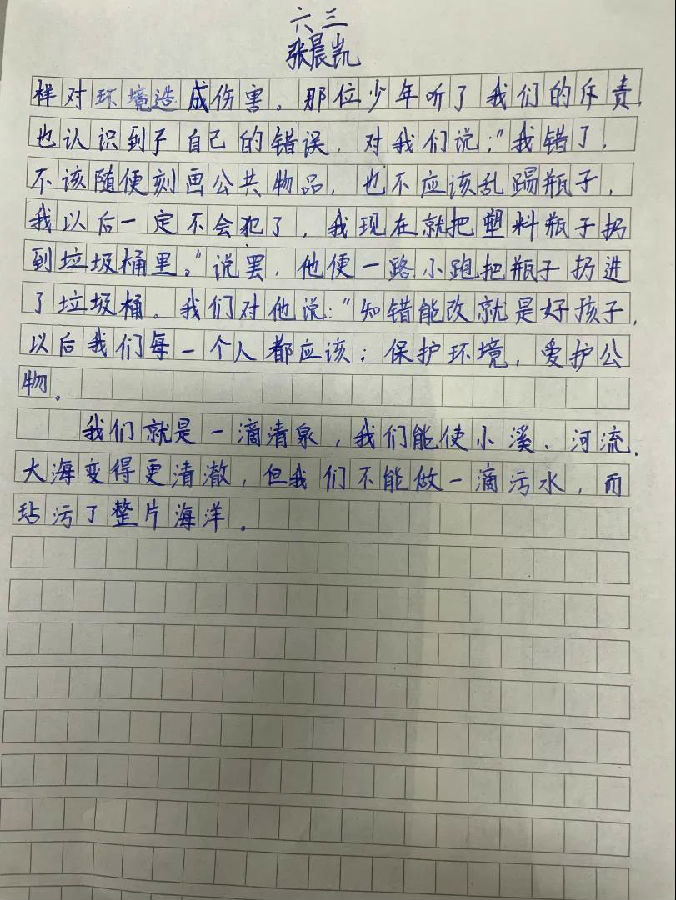 六三
张晨凯
样对环境造成伤害。那位少年听了我们的斥责，
也认识到了自己的错误，对我们说："我错了，
不该随便刻画公共物品，也不应该乱踢瓶子，
我以后一定不会犯了，我现在就把塑料瓶子扔
到垃圾桶里。"说罢，他便一路小跑把瓶子扔进
了垃圾桶。我们对他说："知错能改就是好孩子，
以后我们每一个人都应该：保护环境，爱护公
物。
我们就是一滴清泉，我们能使小溪、河流、
大海变得更清澈，但我们不能做一滴污水，而
玷污了整片海洋。